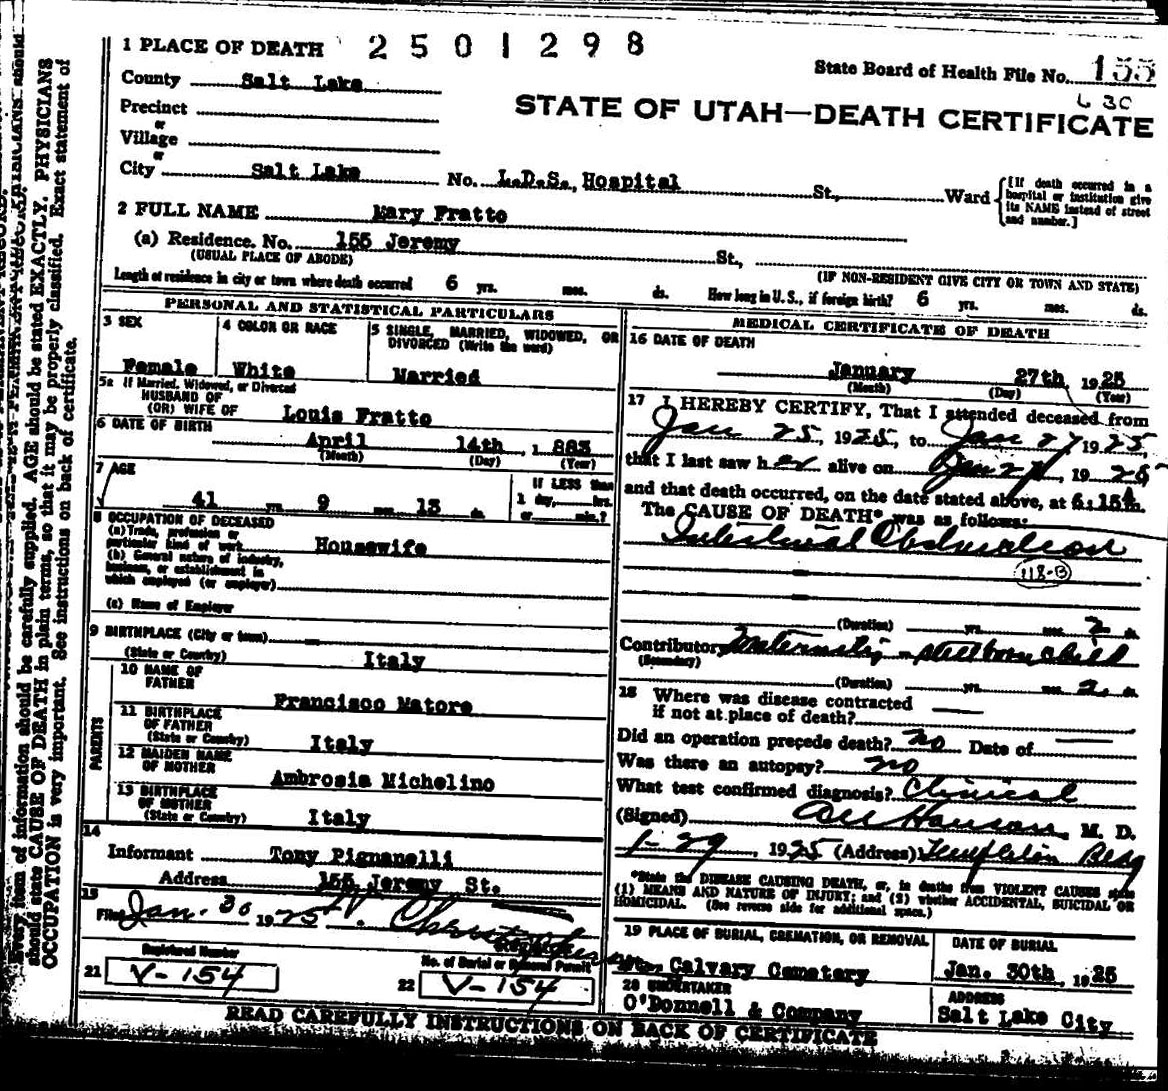 1 PLACE OF DEATH 2501298
State Board of Health File No. 155
County Salt Lake
L 30
STATE OF UTAH—DEATH CERTIFICATE
Precinct
or
Village
or
City Salt Lake No. L.D.S., Hospital St., Ward
[If death occurred in a hospital or institution give its NAME instead of street and number.]
2 FULL NAME Mary Fratto
(a) Residence. No. 155 Jeremy St.,
(USUAL PLACE OF ABODE)
(IF NON-RESIDENT GIVE CITY OR TOWN AND STATE)
Length of residence in city or town where death occurred 6 yrs. mos. ds. How long in U. S., if foreign birth? 6 yrs. mos. ds.
PERSONAL AND STATISTICAL PARTICULARS
3 SEX
Female
4 COLOR OR RACE
White
5 SINGLE, MARRIED, WIDOWED, OR
DIVORCED (Write the word)
Married
5a If Married, Widowed, or Divorced
HUSBAND OF
(OR) WIFE OF Louis Fratto
6 DATE OF BIRTH
April 14th, 1883
(Month) (Day) (Year)
7 AGE
41 yrs. 9 mos. 13 ds.
IF LESS than
1 day, hrs.
or min.?
8 OCCUPATION OF DECEASED
(a) Trade, profession or
particular kind of work Housewife
(b) General nature of industry,
business, or establishment in
which employed (or employer)
(c) Name of Employer
9 BIRTHPLACE (City or town)
(State or Country) Italy
PARENTS
10 NAME OF
FATHER
Francisco Matore
11 BIRTHPLACE
OF FATHER
(State or Country) Italy
12 MAIDEN NAME
OF MOTHER
Ambrosia Michelino
13 BIRTHPLACE
OF MOTHER
(State or Country) Italy
14
Informant Tony Pignanelli
Address 155 Jeremy St.
15
Filed Jan. 30 1925
Registered Number
21 V-154
No. of Burial or Removal Permit
22 V-154
MEDICAL CERTIFICATE OF DEATH
16 DATE OF DEATH
January 27th, 1925
(Month) (Day) (Year)
17 I HEREBY CERTIFY, That I attended deceased from
Jan 25, 1925, to Jan 27 1925,
that I last saw her alive on Jan 27, 1925
and that death occurred, on the date stated above, at 6:15 A m.
The CAUSE OF DEATH* was as follows:
Intestinal Obstruction
118-B
(Duration) yrs. mos. 2 ds.
Contributory Maternity - stillborn child
(Secondary)
(Duration) yrs. mos. 2 ds.
18 Where was disease contracted
if not at place of death?
Did an operation precede death? no Date of
Was there an autopsy? no
What test confirmed diagnosis? Clinical
(Signed) Hanson, M. D.
1-29, 1925 (Address) Templeton Bldg
*State the DISEASE CAUSING DEATH, or, in deaths from VIOLENT CAUSES state
(1) MEANS AND NATURE OF INJURY; and (2) whether ACCIDENTAL, SUICIDAL OR
HOMICIDAL. (See reverse side for additional space.)
19 PLACE OF BURIAL, CREMATION, OR REMOVAL
Mt. Calvary Cemetary
DATE OF BURIAL
Jan. 30th, 1925
20 UNDERTAKER
O'Donnell & Company
ADDRESS
Salt Lake City
READ CAREFULLY INSTRUCTIONS ON BACK OF CERTIFICATE
Every item of information should be carefully supplied. AGE should be stated EXACTLY. PHYSICIANS
should state CAUSE OF DEATH in plain terms, so that it may be properly classified. Exact statement of
OCCUPATION is very important. See instructions on back of certificate.